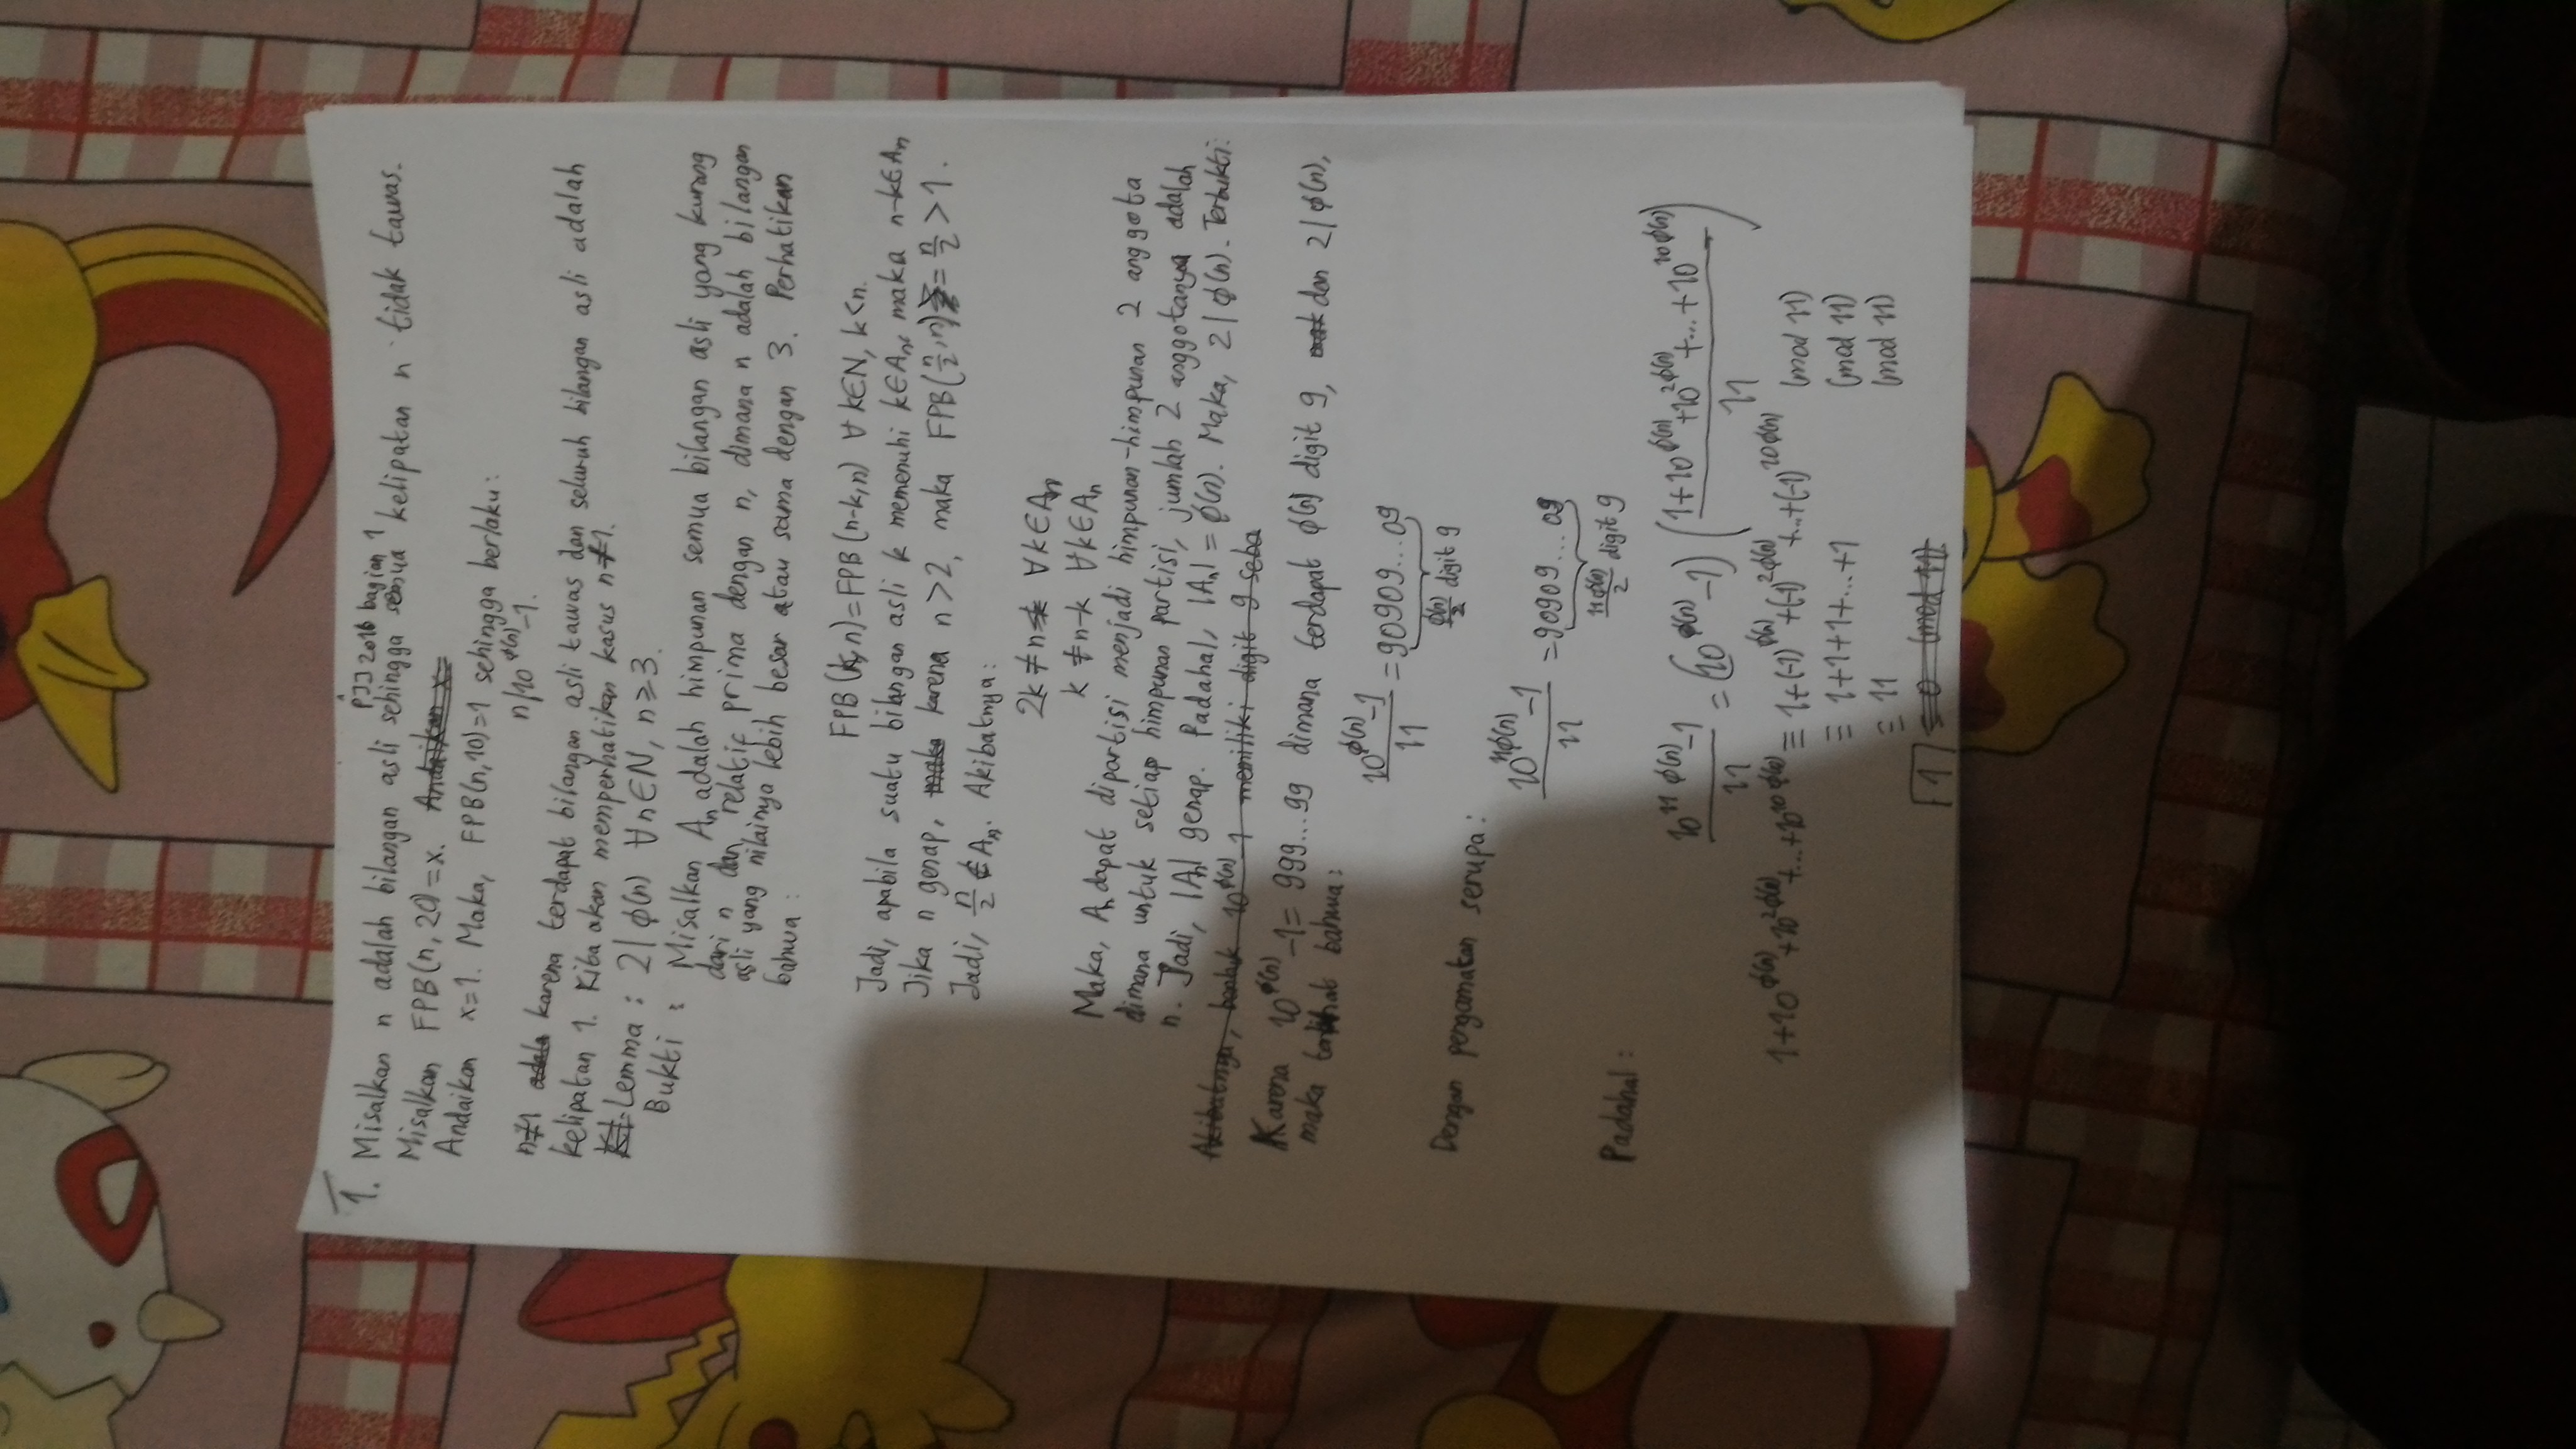 PJJ 2016 bagian 1
1. Misalkan n adalah bilangan asli sehingga semua kelipatan n tidak tawas.
Misalkan FPB(n, 20) = x. Andaikan x=
Andaikan x=1. Maka, FPB(n,10)=1 sehingga berlaku:
n|10^ϕ(n) -1.
n≠1 adala karena terdapat bilangan asli tawas dan seluruh bilangan asli adalah
kelipatan 1. Kita akan memperhatikan kasus n≠1.
Lemma : 2|ϕ(n) ∀n∈N, n≥3.
Bukti : Misalkan Aₙ adalah himpunan semua bilangan asli yang kurang
dari n dan relatif prima dengan n, dimana n adalah bilangan
asli yang nilainya lebih besar atau sama dengan 3. Perhatikan
bahwa :
FPB(k,n)=FPB(n-k,n) ∀ k∈N, k<n.
Jadi, apabila suatu bilangan asli k memenuhi k∈Aₙ, maka n-k∈Aₙ
Jika n genap, maka karena n>2, maka FPB(n/2, n) = n/2 > 1.
Jadi, n/2 ∉ Aₙ. Akibatnya:
2k ≠ n ∀k∈Aₙ
k ≠ n-k ∀k∈Aₙ
Maka, Aₙ dapat dipartisi menjadi himpunan-himpunan 2 anggota
dimana untuk setiap himpunan partisi, jumlah 2 anggotanya adalah
n. Jadi, |Aₙ| genap. Padahal, |Aₙ| = ϕ(n). Maka, 2|ϕ(n). Terbukti.
Akibatnya, bentuk 10^ϕ(n) -1 memiliki digit 9 seba
Karena 10^ϕ(n) -1 = 999...99 dimana terdapat ϕ(n) digit 9, dan 2|ϕ(n),
maka terlihat bahwa:
(10^ϕ(n) -1)/11 = 90909...09
ϕ(n)/2 digit 9
Dengan pengamatan serupa:
(10^11ϕ(n) -1)/11 = 90909...09
11ϕ(n)/2 digit 9
Padahal :
(10^11ϕ(n) -1)/11 = (10^ϕ(n) -1) ((1+10^ϕ(n)+10^2ϕ(n)+...+10^10ϕ(n))/11)
1+10^ϕ(n)+10^2ϕ(n)+...+10^10ϕ(n) ≡ 1+(-1)^ϕ(n)+(-1)^2ϕ(n)+...+(-1)^10ϕ(n) (mod 11)
≡ 1+1+1+...+1 (mod 11)
≡ 11 (mod 11)
1 ≡ 0 (mod 11)